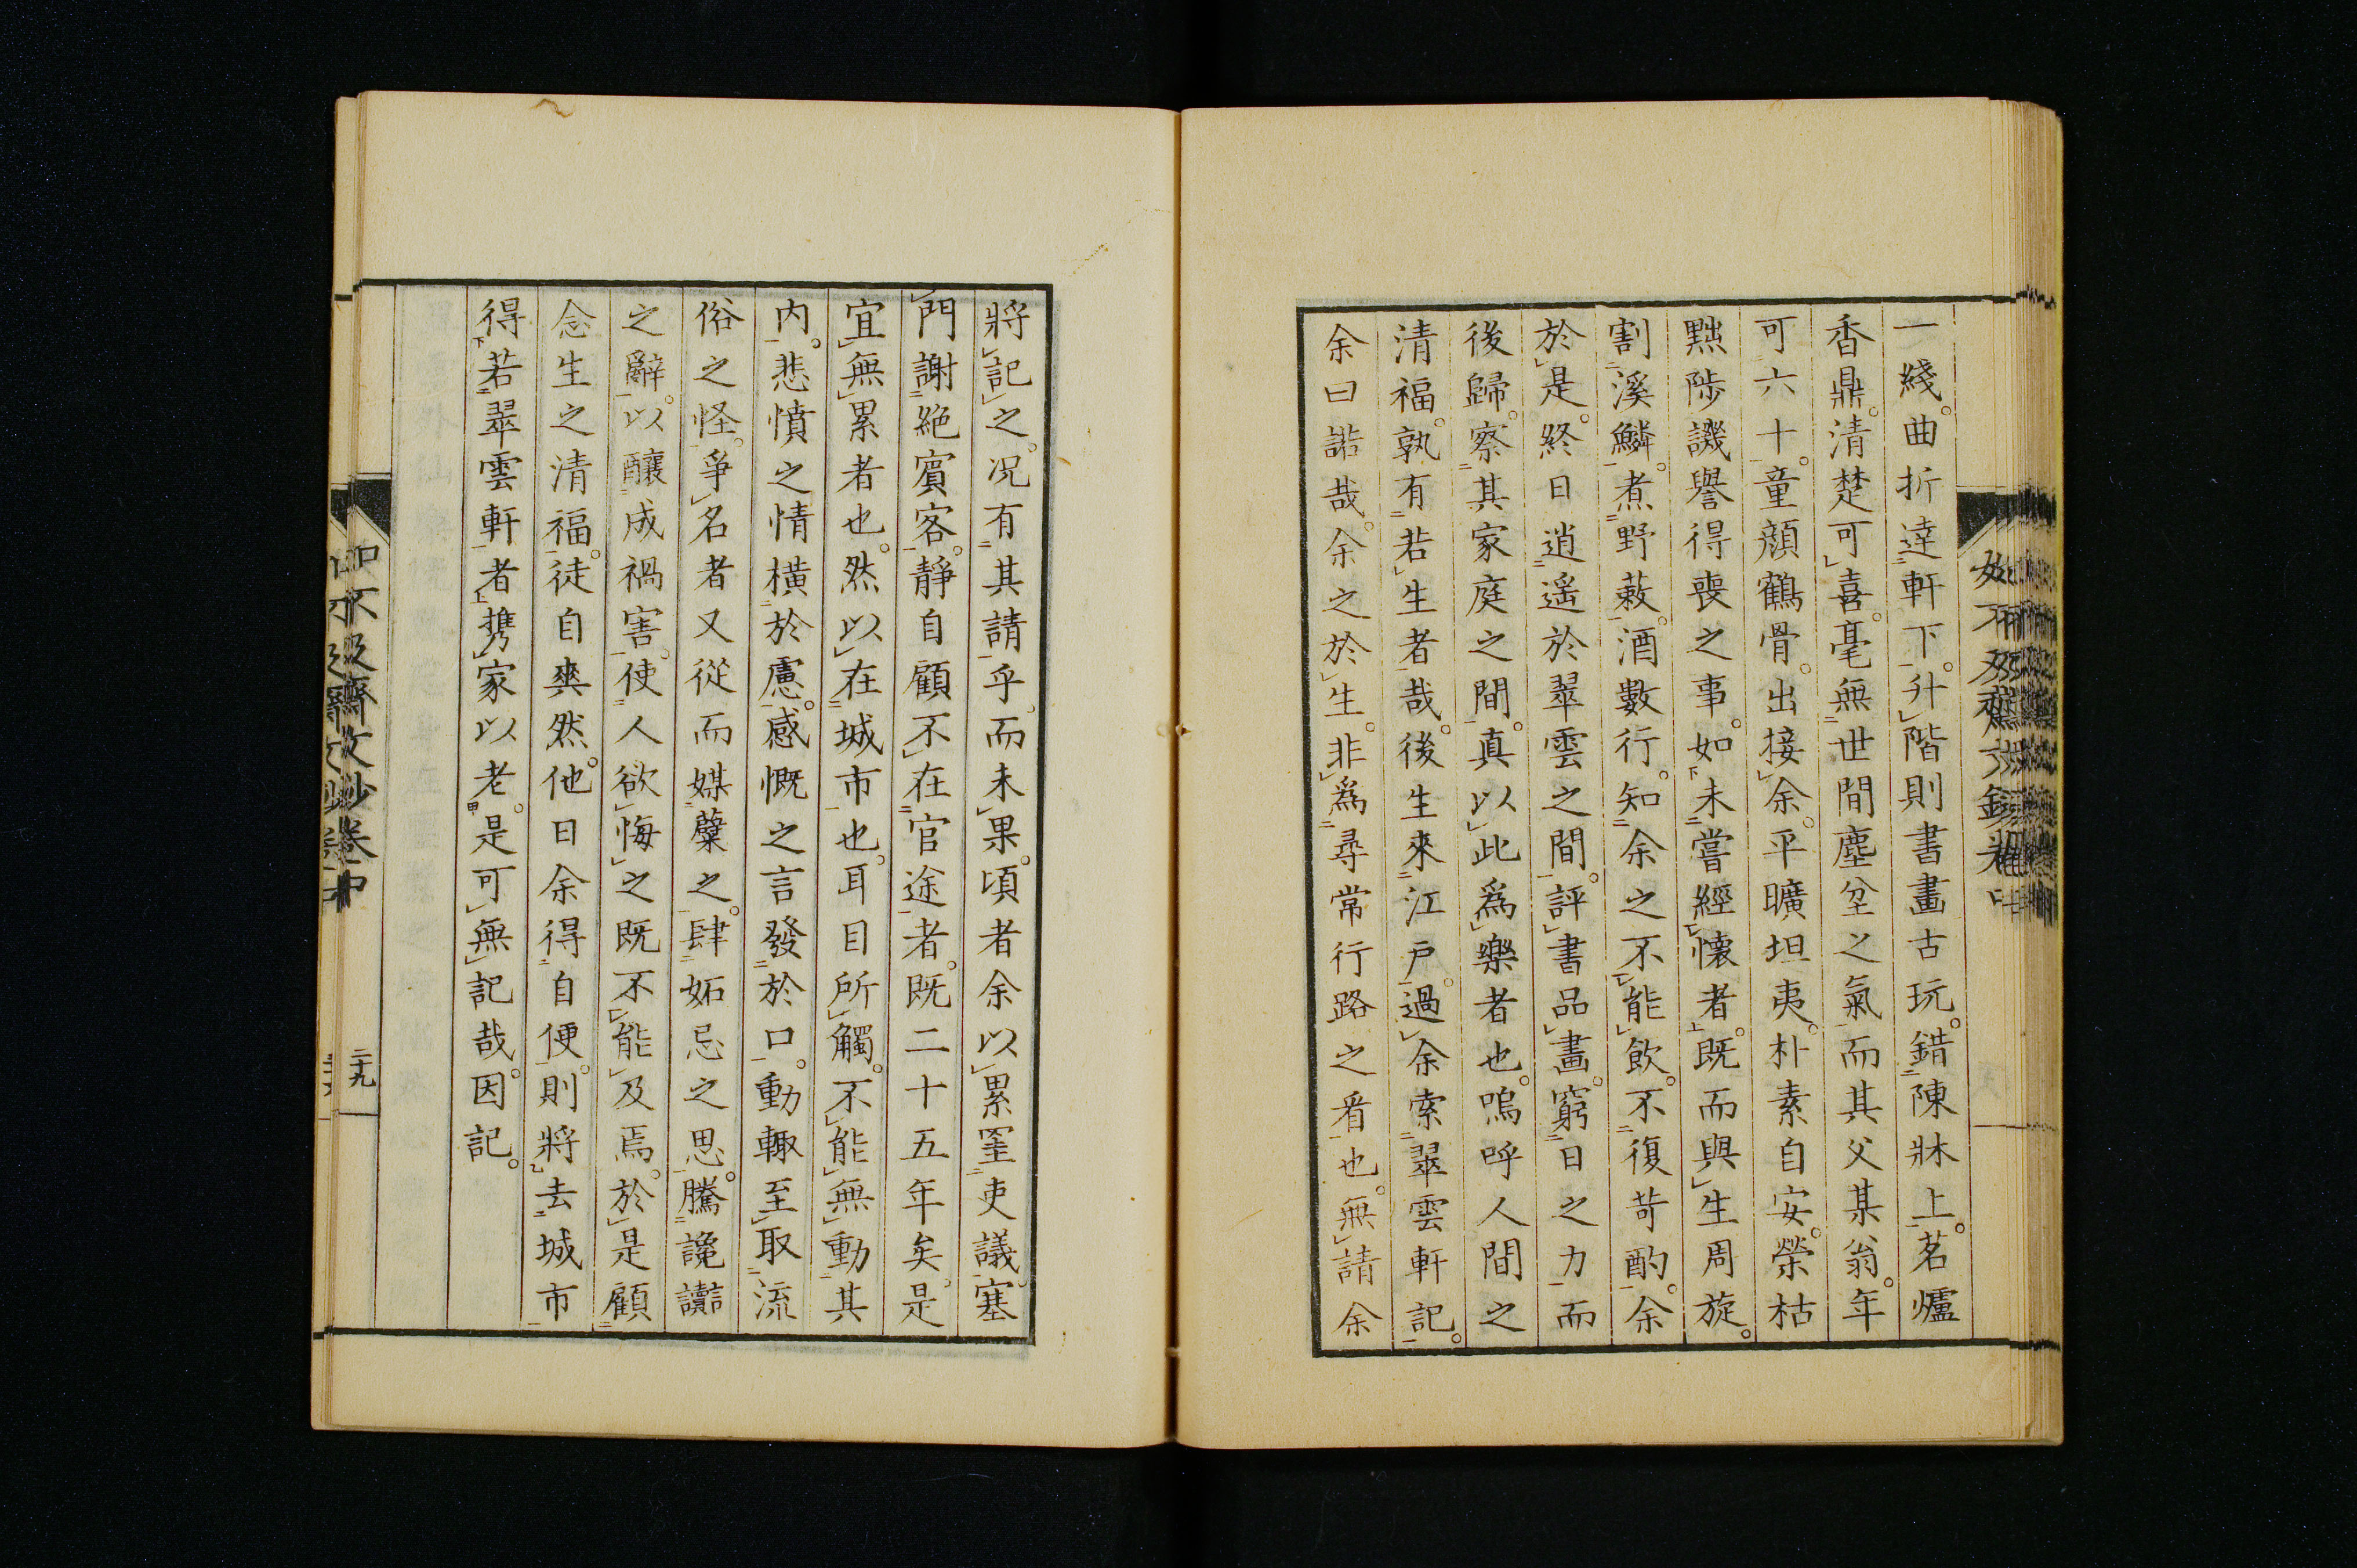 一綫。曲折達軒下。升階則書畫古玩。錯陳牀上。茗爐
香鼎。清楚可喜。毫無世間塵坌之氣而其父某翁。年
可六十。童顏鶴骨。出接余。平曠坦夷。朴素自安。榮枯
黜陟譏譽得喪之事。如未嘗經懷者。既而與生周旋。
割溪鱗。煮野蔌。酒數行。知余之不能飲。不復苛酌。余
於是。終日逍遙於翠雲之間。評書品畫。窮日之力而
後歸。察其家庭之間。真以此爲樂者也。嗚呼人間之
清福。孰有若生者哉。後生來江戶。過余索翠雲軒記。
余曰諾哉。余之於生。非爲尋常行路之看也。無請余
將記之。況有其請乎。而未果。頃者余以累罣吏議。塞
門謝絶賓客。靜自顧不在官途者。既二十五年矣。是
宜無累者也。然以在城市也。耳目所觸。不能無動其
內。悲憤之情橫於慮。感慨之言發於口。動輙至取流
俗之怪。爭名者又從而媒糵之。肆妬忌之思。騰讒讟
之辭。以釀成禍害。使人欲悔之既不能及焉。於是顧
念生之清福。徒自爽然。他日余得自便。則將去城市
得若翠雲軒者。攜家以老。是可無記哉。因記。
如不及齋文鈔卷中
二十九